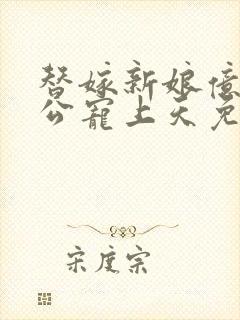 替嫁新娘億
公寵上天免
宋度宗